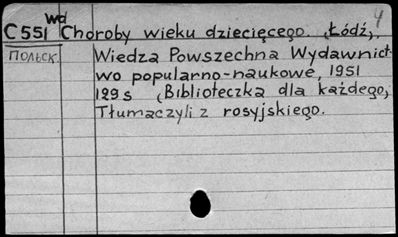 wd 4
C551 Choroby wieku dziecięcego. (Łódź),
Польск. Wiedza Powszechna Wydawnict-
wo popularno-naukowe, 1951
129 s (Biblioteczka dla każdego)
Tłumaczyli z rosyjskiego.